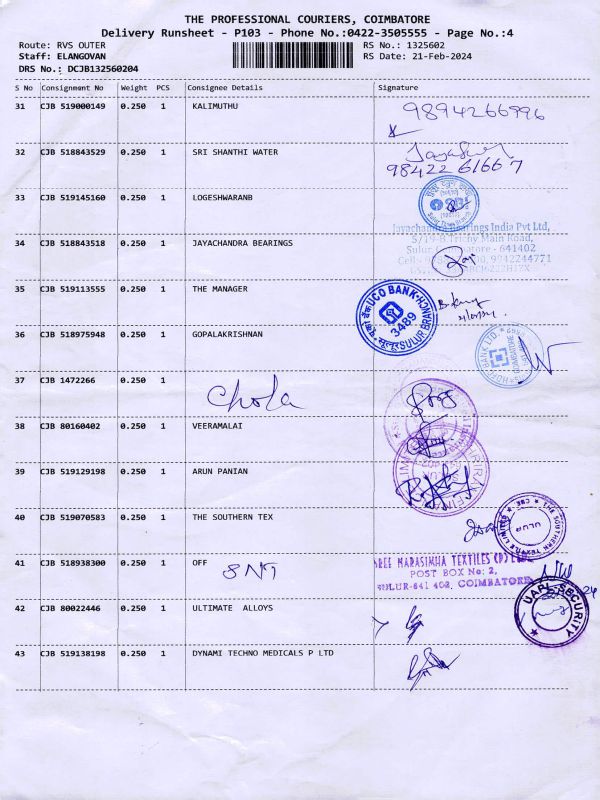 THE PROFESSIONAL COURIERS, COIMBATORE
Delivery Runsheet - P103 - Phone No.:0422-3505555 - Page No.:4
Route: RVS OUTER
RS No.: 1325602
Staff: ELANGOVAN
RS Date: 21-Feb-2024
DRS No.: DCJB132560204
S No Consignment No Weight PCS Consignee Details Signature
31 CJB 519000149 0.250 1 KALIMUTHU
9894266996
32 CJB 518843529 0.250 1 SRI SHANTHI WATER
9842261667
33 CJB 519145160 0.250 1 LOGESHWARANB
Jayachandra Bearings India Pvt Ltd,
5/719-B, Trichy Main Road,
34 CJB 518843518 0.250 1 JAYACHANDRA BEARINGS
Sulur, Coimbatore - 641402
9942244771
35 CJB 519113555 0.250 1 THE MANAGER
UCO BANK
3489
SULUR BRANCH
36 CJB 518975948 0.250 1 GOPALAKRISHNAN
BANK LTD.
COIMBATORE
37 CJB 1472266 0.250 1
Chola
38 CJB 80160402 0.250 1 VEERAMALAI
39 CJB 519129198 0.250 1 ARUN PANIAN
40 CJB 519070583 0.250 1 THE SOUTHERN TEX
THE SOUTHERN TEXTILE LIMITED
SULUR
41 CJB 518938300 0.250 1 OFF
SREE NARASIMHA TEXTILES (P) LTD
POST BOX No: 2,
SULUR-641 402, COIMBATORE
42 CJB 80022446 0.250 1 ULTIMATE ALLOYS
UAPL SECURITY
43 CJB 519138198 0.250 1 DYNAMI TECHNO MEDICALS P LTD